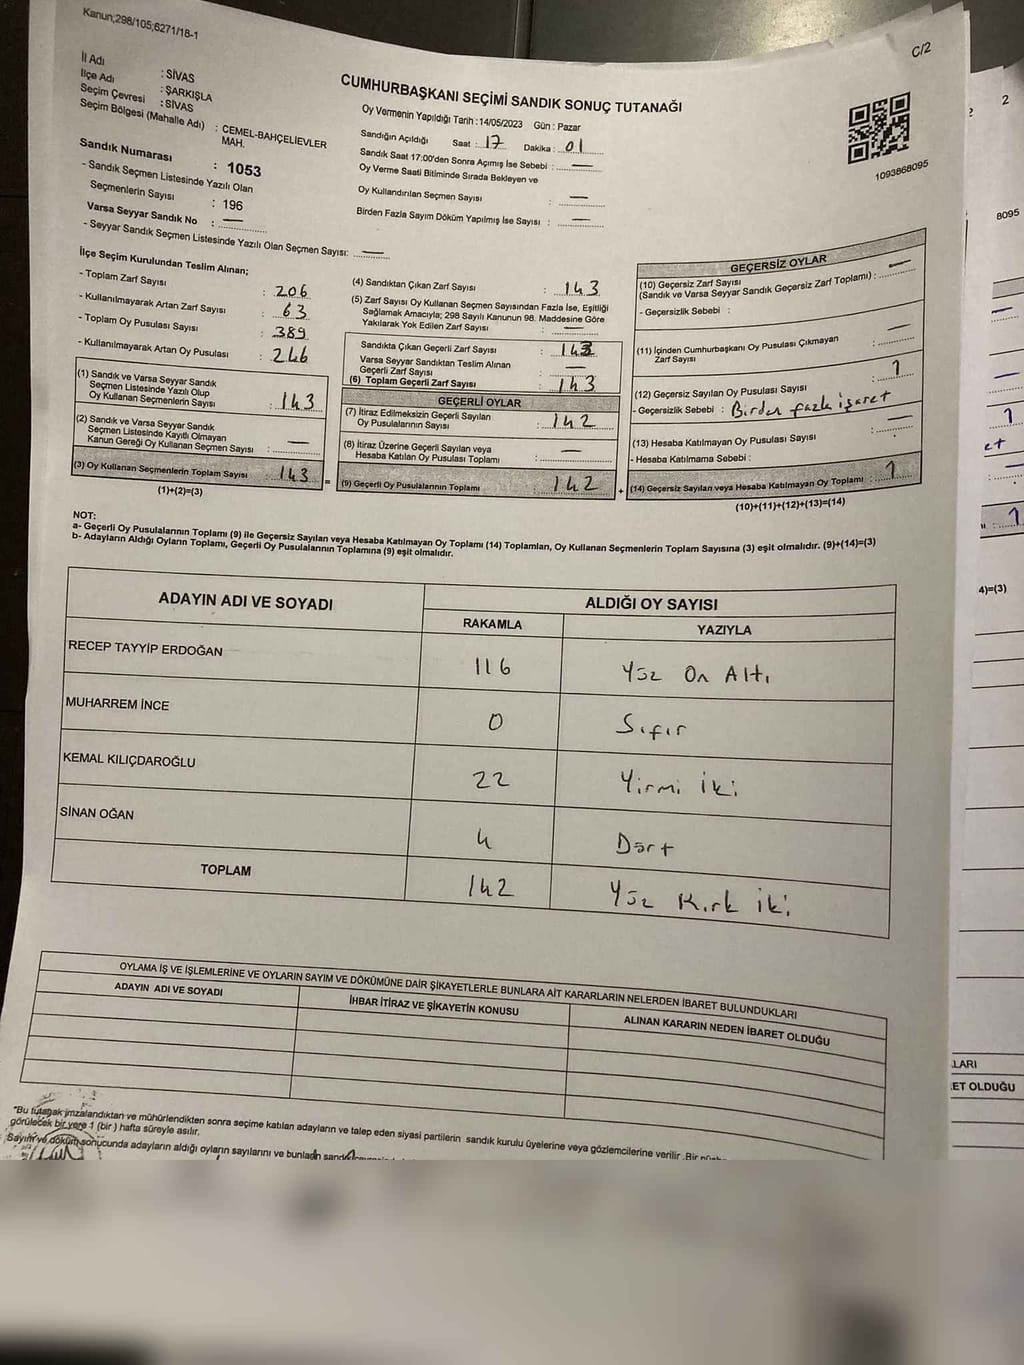 Kanun;298/105;6271/18-1
C/2
İl Adı : SİVAS
İlçe Adı : ŞARKIŞLA
Seçim Çevresi : SİVAS
Seçim Bölgesi (Mahalle Adı) : CEMEL-BAHÇELİEVLER MAH.
Sandık Numarası : 1053
- Sandık Seçmen Listesinde Yazılı Olan
Seçmenlerin Sayısı : 196
Varsa Seyyar Sandık No : —
- Seyyar Sandık Seçmen Listesinde Yazılı Olan Seçmen Sayısı: —
CUMHURBAŞKANI SEÇİMİ SANDIK SONUÇ TUTANAĞI
Oy Vermenin Yapıldığı Tarih :14/05/2023 Gün : Pazar
Sandığın Açıldığı Saat : 17 Dakika : 01
Sandık Saat 17:00'den Sonra Açımış İse Sebebi : —
Oy Verme Saati Bitiminde Sırada Bekleyen ve
Oy Kullandırılan Seçmen Sayısı : —
Birden Fazla Sayım Döküm Yapılmış İse Sayısı : —
1093868095
İlçe Seçim Kurulundan Teslim Alınan;
- Toplam Zarf Sayısı : 206
- Kullanılmayarak Artan Zarf Sayısı : 63
- Toplam Oy Pusulası Sayısı : 389
- Kullanılmayarak Artan Oy Pusulası : 246
(1) Sandık ve Varsa Seyyar Sandık
Seçmen Listesinde Yazılı Olup
Oy Kullanan Seçmenlerin Sayısı : 143
(2) Sandık ve Varsa Seyyar Sandık
Seçmen Listesinde Kayıtlı Olmayan
Kanun Gereği Oy Kullanan Seçmen Sayısı : —
(3) Oy Kullanan Seçmenlerin Toplam Sayısı : 143
(1)+(2)=(3)
=
(4) Sandıktan Çıkan Zarf Sayısı : 143
(5) Zarf Sayısı Oy Kullanan Seçmen Sayısından Fazla İse, Eşitliği
Sağlamak Amacıyla; 298 Sayılı Kanunun 98. Maddesine Göre
Yakılarak Yok Edilen Zarf Sayısı : —
Sandıkta Çıkan Geçerli Zarf Sayısı : 143
Varsa Seyyar Sandıktan Teslim Alınan
Geçerli Zarf Sayısı : —
(6) Toplam Geçerli Zarf Sayısı : 143
GEÇERLİ OYLAR
(7) İtiraz Edilmeksizin Geçerli Sayılan
Oy Pusulalarının Sayısı : 142
(8) İtiraz Üzerine Geçerli Sayılan veya
Hesaba Katılan Oy Pusulası Toplamı : —
(9) Geçerli Oy Pusulalarının Toplamı : 142
+
GEÇERSİZ OYLAR
(10) Geçersiz Zarf Sayısı
(Sandık ve Varsa Seyyar Sandık Geçersiz Zarf Toplamı) : —
- Geçersizlik Sebebi :
(11) İçinden Cumhurbaşkanı Oy Pusulası Çıkmayan
Zarf Sayısı : —
(12) Geçersiz Sayılan Oy Pusulası Sayısı : 1
- Geçersizlik Sebebi : Birden fazla işaret
(13) Hesaba Katılmayan Oy Pusulası Sayısı : —
- Hesaba Katılmama Sebebi :
(14) Geçersiz Sayılan veya Hesaba Katılmayan Oy Toplamı : 1
(10)+(11)+(12)+(13)=(14)
NOT:
a- Geçerli Oy Pusulalarının Toplamı (9) ile Geçersiz Sayılan veya Hesaba Katılmayan Oy Toplamı (14) Toplamları, Oy Kullanan Seçmenlerin Toplam Sayısına (3) eşit olmalıdır. (9)+(14)=(3)
b- Adayların Aldığı Oyların Toplamı, Geçerli Oy Pusulalarının Toplamına (9) eşit olmalıdır.
ADAYIN ADI VE SOYADI ALDIĞI OY SAYISI
RAKAMLA YAZIYLA
RECEP TAYYİP ERDOĞAN 116 Yüz On Altı
MUHARREM İNCE 0 Sıfır
KEMAL KILIÇDAROĞLU 22 Yirmi İki
SİNAN OĞAN 4 Dört
TOPLAM 142 Yüz Kırk İki
OYLAMA İŞ VE İŞLEMLERİNE VE OYLARIN SAYIM VE DÖKÜMÜNE DAİR ŞİKAYETLERLE BUNLARA AİT KARARLARIN NELERDEN İBARET BULUNDUKLARI
ADAYIN ADI VE SOYADI İHBAR İTİRAZ VE ŞİKAYETİN KONUSU ALINAN KARARIN NEDEN İBARET OLDUĞU
"Bu tutanak imzalandıktan ve mühürlendikten sonra seçime katılan adayların ve talep eden siyasi partilerin sandık kurulu üyelerine veya gözlemcilerine verilir .Bir
görülecek bir yere 1 (bir ) hafta süreyle asılır.
Sayım ve döküm sonucunda adayların aldığı oyların sayılarını ve bunların
2
8095
1
et
1
4)=(3)
LARI
ET OLDUĞU